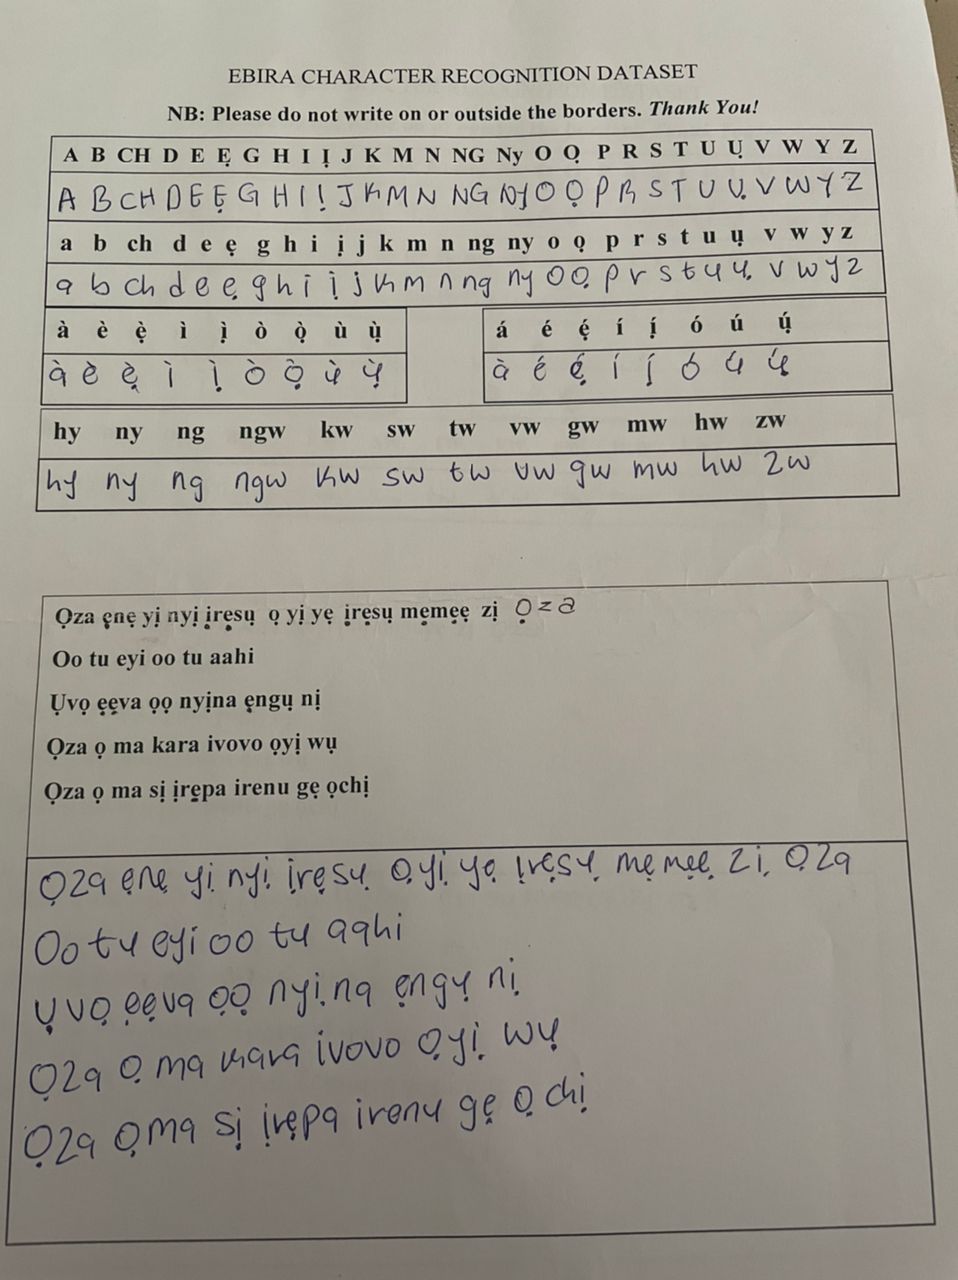 EBIRA CHARACTER RECOGNITION DATASET
NB: Please do not write on or outside the borders. Thank You!
A B CH D E Ẹ G H I Ị J K M N NG Ny O Ọ P R S T U Ụ V W Y Z
A B CH D E Ẹ G H I Ị J K M N NG Ny O Ọ P R S T U Ụ V W Y Z
a b ch d e ẹ g h i ị j k m n ng ny o ọ p r s t u ụ v w y z
a b ch d e ẹ g h i ị j k m n ng ny o ọ p r s t u ụ v w y z
à è ẹ̀ ì ị̀ ò ọ̀ ù ụ̀ á é ẹ́ í ị́ ó ú ụ́
à è ẹ̀ ì ị̀ ò ọ̀ ù ụ̀ à é ẹ́ í ị́ ó ú ụ́
hy ny ng ngw kw sw tw vw gw mw hw zw
hy ny ng ngw kw sw tw vw gw mw hw zw
Ọza ẹnẹ yị nyị ịrẹsụ ọ yị yẹ ịrẹsụ mẹmẹẹ zị Ọza
Oo tu eyi oo tu aahi
Ụvọ ẹẹva ọọ nyịna ẹngụ nị
Ọza ọ ma kara ivovo ọyị wụ
Ọza ọ ma sị ịrẹpa irenu gẹ ọchị
Ọza ẹnẹ yị nyị ịrẹsụ Ọyị yẹ ịrẹsụ mẹmẹẹ zị Ọza
Oo tu eyi oo tu aahi
Ụvọ ẹẹva ọọ nyịna ẹngụ nị
Ọza Ọ ma kara ivovo Ọyị wụ
Ọza Ọ ma sị ịrẹpa irenu gẹ Ọchị